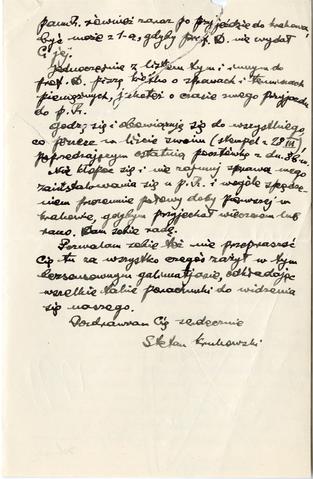 pamf., również zaraz po przyjeździe do Krakowa,
być może z 1-a, gdyby prof. D. nie wydał
Ci jej.
Jednocześnie z listem tym i innym do
prof. D. piszę krótko o sprawach i terminach
pieniężnych, jakoteż o czasie swego przyjazdu
do p. K.
Godzę się i obowiązuję się do wszystkiego,
co piszesz w liście swoim (stempel z 28 III),
poprzedzającym ostatnią pocztówkę z dn. 30 b.
Nie kłopocz się i nie zajmuj sprawą mego
zainstalowania się u p. K. i wogóle spędzeniem
przezemnie połowy doby pierwszej w
Krakowie, gdybym przyjechał wieczorem lub
rano. Dam sobie radę.
Pozwalam sobie też nie przepraszać
Cię tu za wszystko czegoś zażył w tym
bezsensownym galimatjasie, odkładając
wszelkie takie porachunki do widzenia
się naszego.
Pozdrawiam Cię serdecznie
Stefan Krukowski